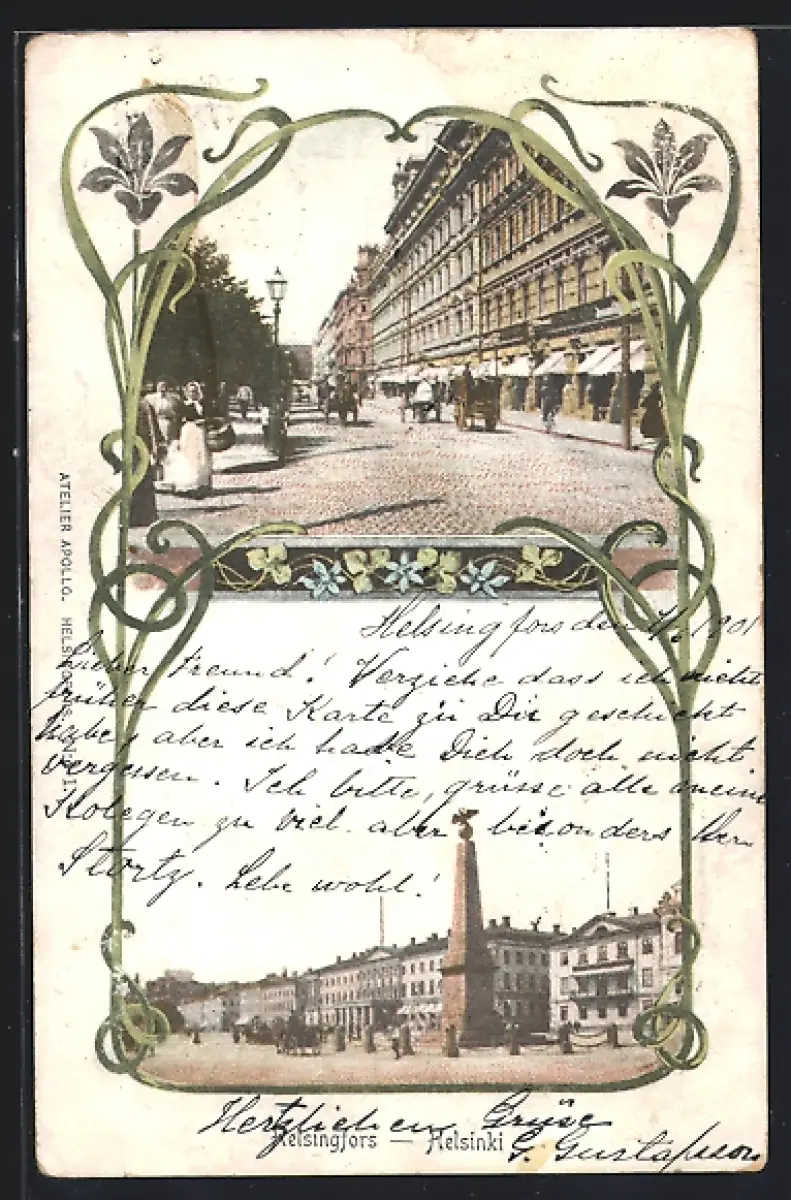 Helsingfors den 7/6 1901
Lieber Freund! Verziehe dass ich nicht
früher diese Karte zu Dir geschickt
habe, aber ich habe Dich doch nicht
vergessen. Ich bitte, grüsse alle meine
Kolegen zu viel aber besonders Hern
Stortz. Lebe wohl!
Hertzlichen Grüse
G. Gustafsson
Helsingfors — Helsinki
ATELIER APOLLO. HELSINGFORS. No